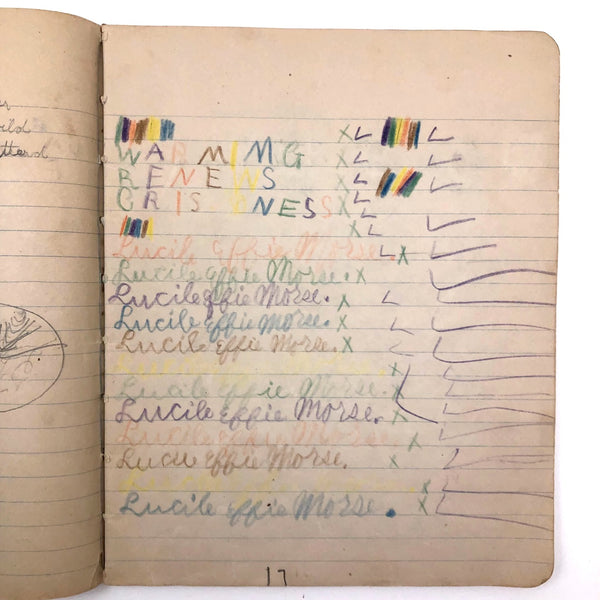 WARMING
RENEWS
CRISPNESS
Lucile Effie Morse.
Lucile Effie Morse.
Lucile Effie Morse.
Lucile Effie Morse.
Lucile Effie Morse.
Lucile Effie Morse.
Lucile Effie Morse.
Lucile Effie Morse.
Lucile Effie Morse.
Lucile Effie Morse.
Lucile Effie Morse.
17